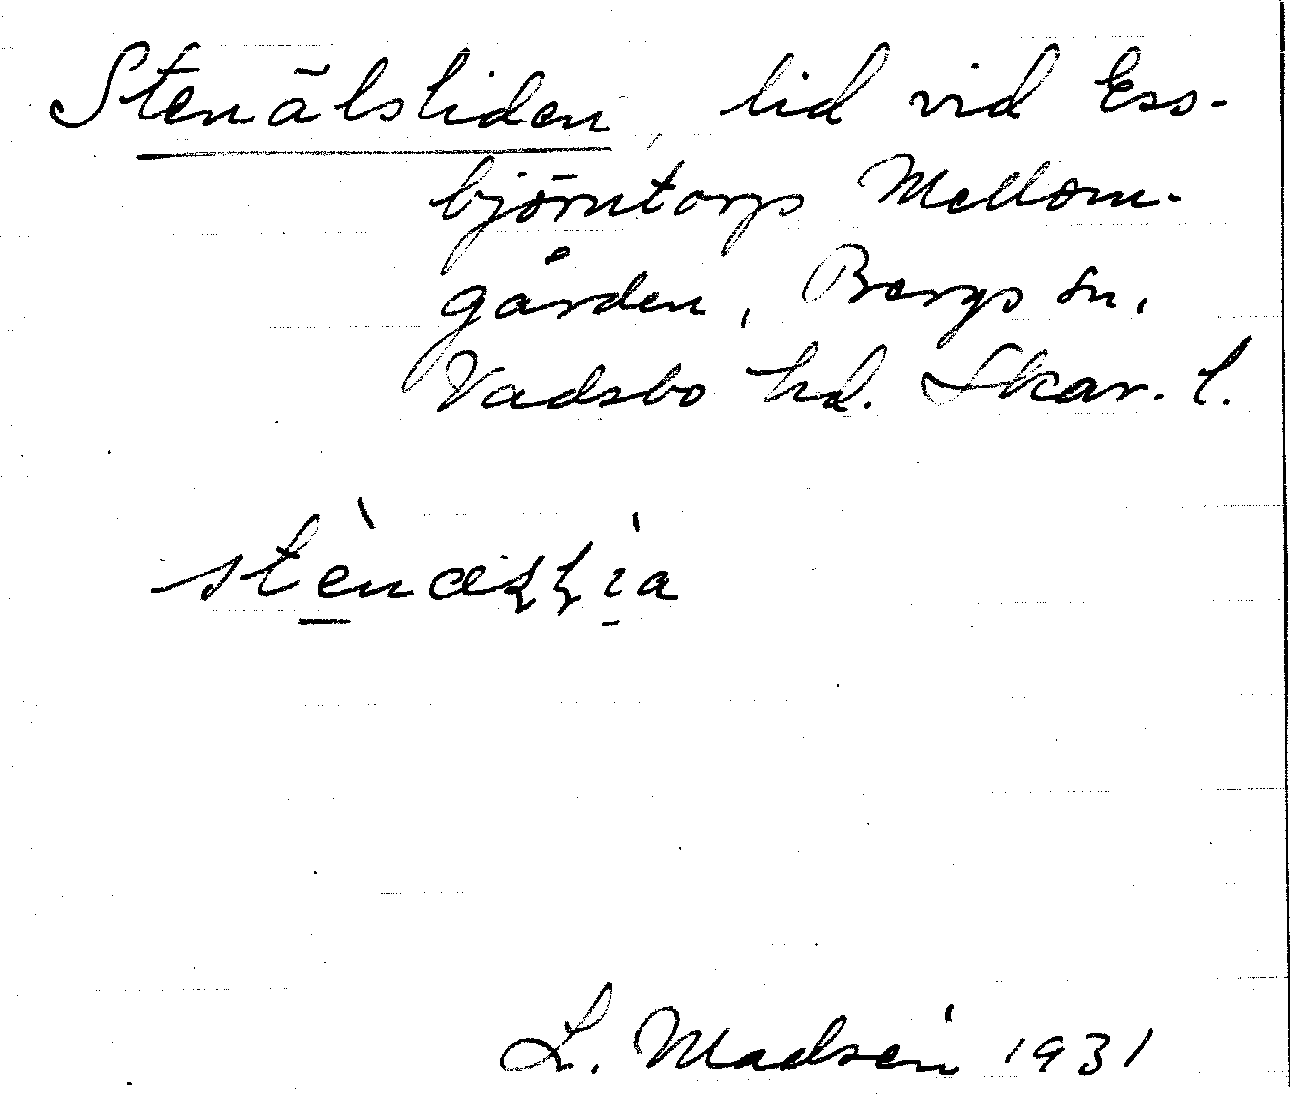 Stenälsliden, lid vid Ess-
björntorps Mellom-
gården, Bergs sn,
Vadsbo hd. Skar. l.
L. Madsén 1931